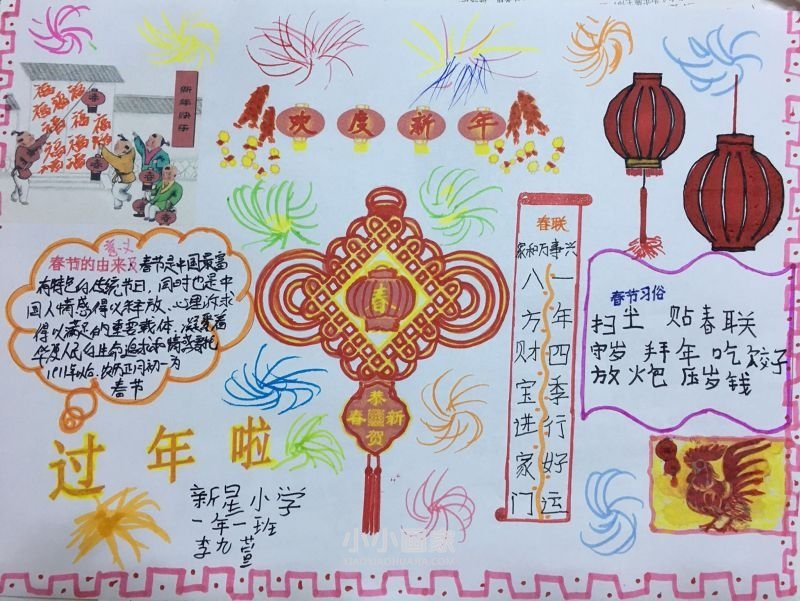 福福福福福福福福福福
春
新年快乐
欢度新年
春节的由来及
意义
春节是中国最富
有特色的传统节日，同时也是中
国人情感得以释放、心理诉求
得以满足的重要载体，凝聚着
华夏人民的生命追求和情感寄托
1911年以后，农历正月初一为
春节
春
恭
春 新
贺
春联
家和万事兴
一年四季行好运
八方财宝进家门
春节习俗
扫尘 贴春联
守岁 拜年 吃饺子
放火炮 压岁钱
过年啦
新星小学
一年一班
李九萱
小小画家
XIAOXIAOHUAJIA.COM